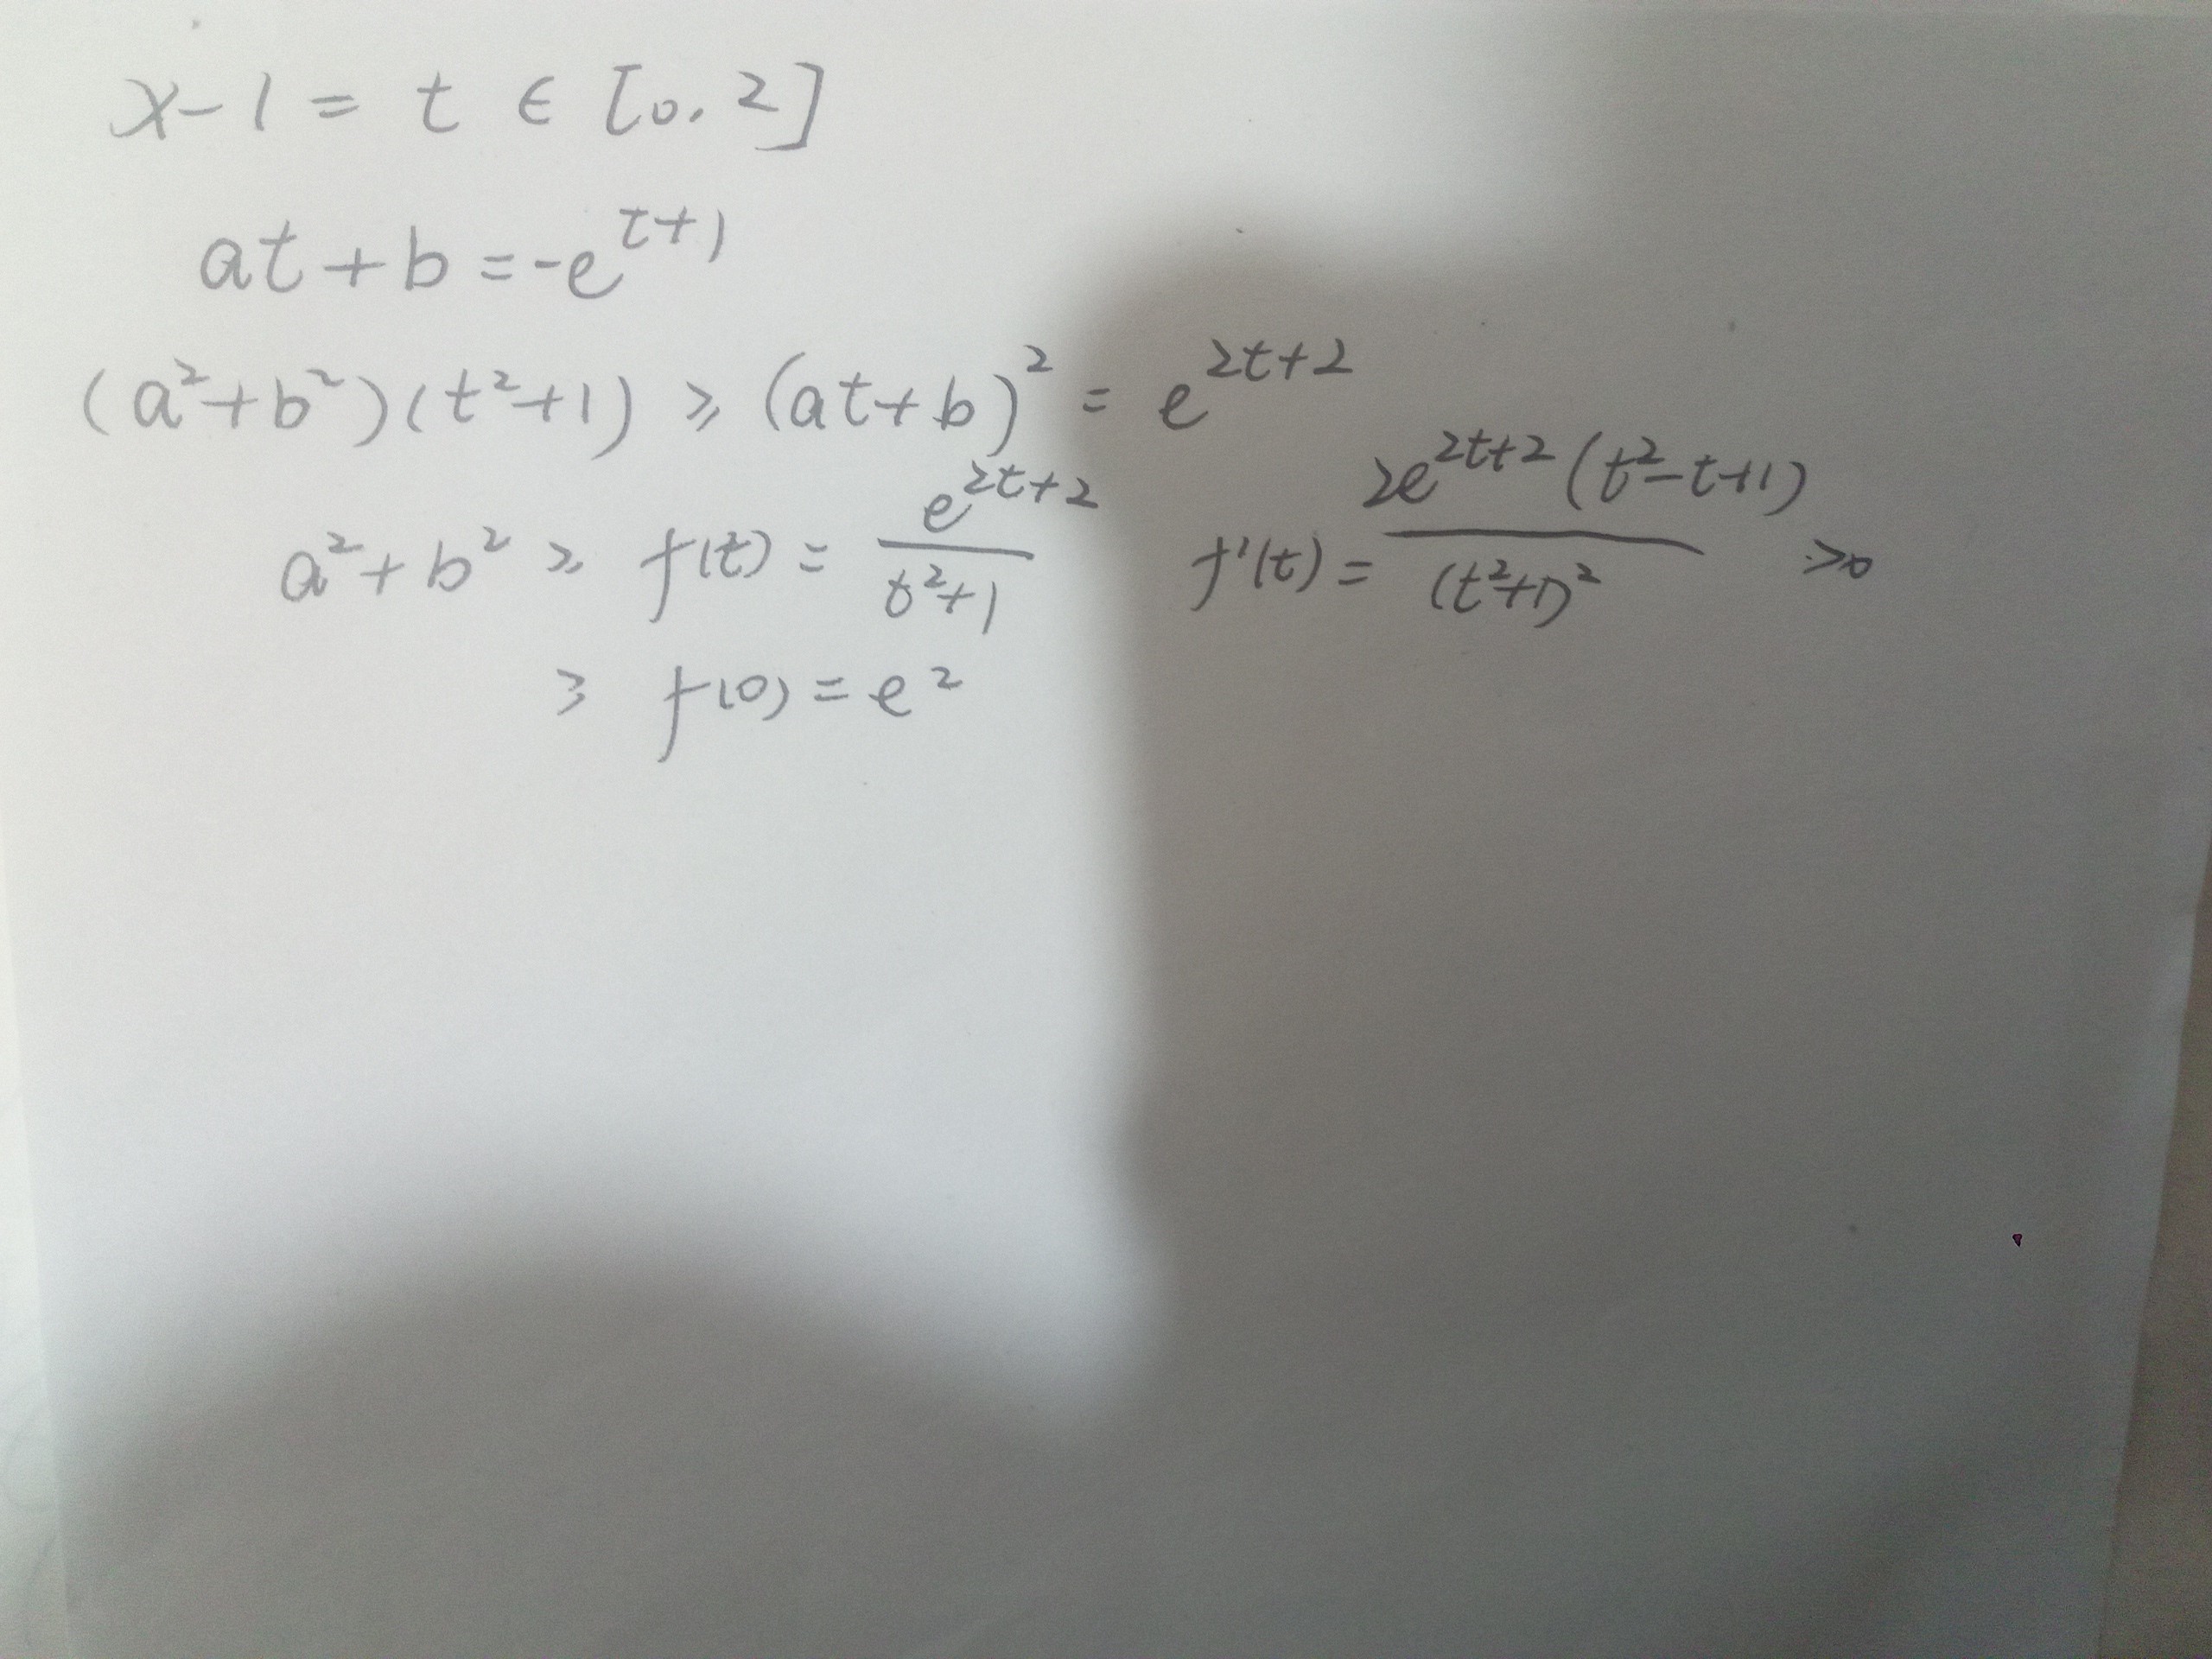 x-1 = t ∈ [0, 2]
at + b = -e^{t+1}
(a²+b²)(t²+1) ≥ (at+b)² = e^{2t+2}
a²+b² ≥ f(t) = \frac{e^{2t+2}}{t²+1} f'(t) = \frac{2e^{2t+2}(t²-t+1)}{(t²+1)²} >0
≥ f(0) = e²